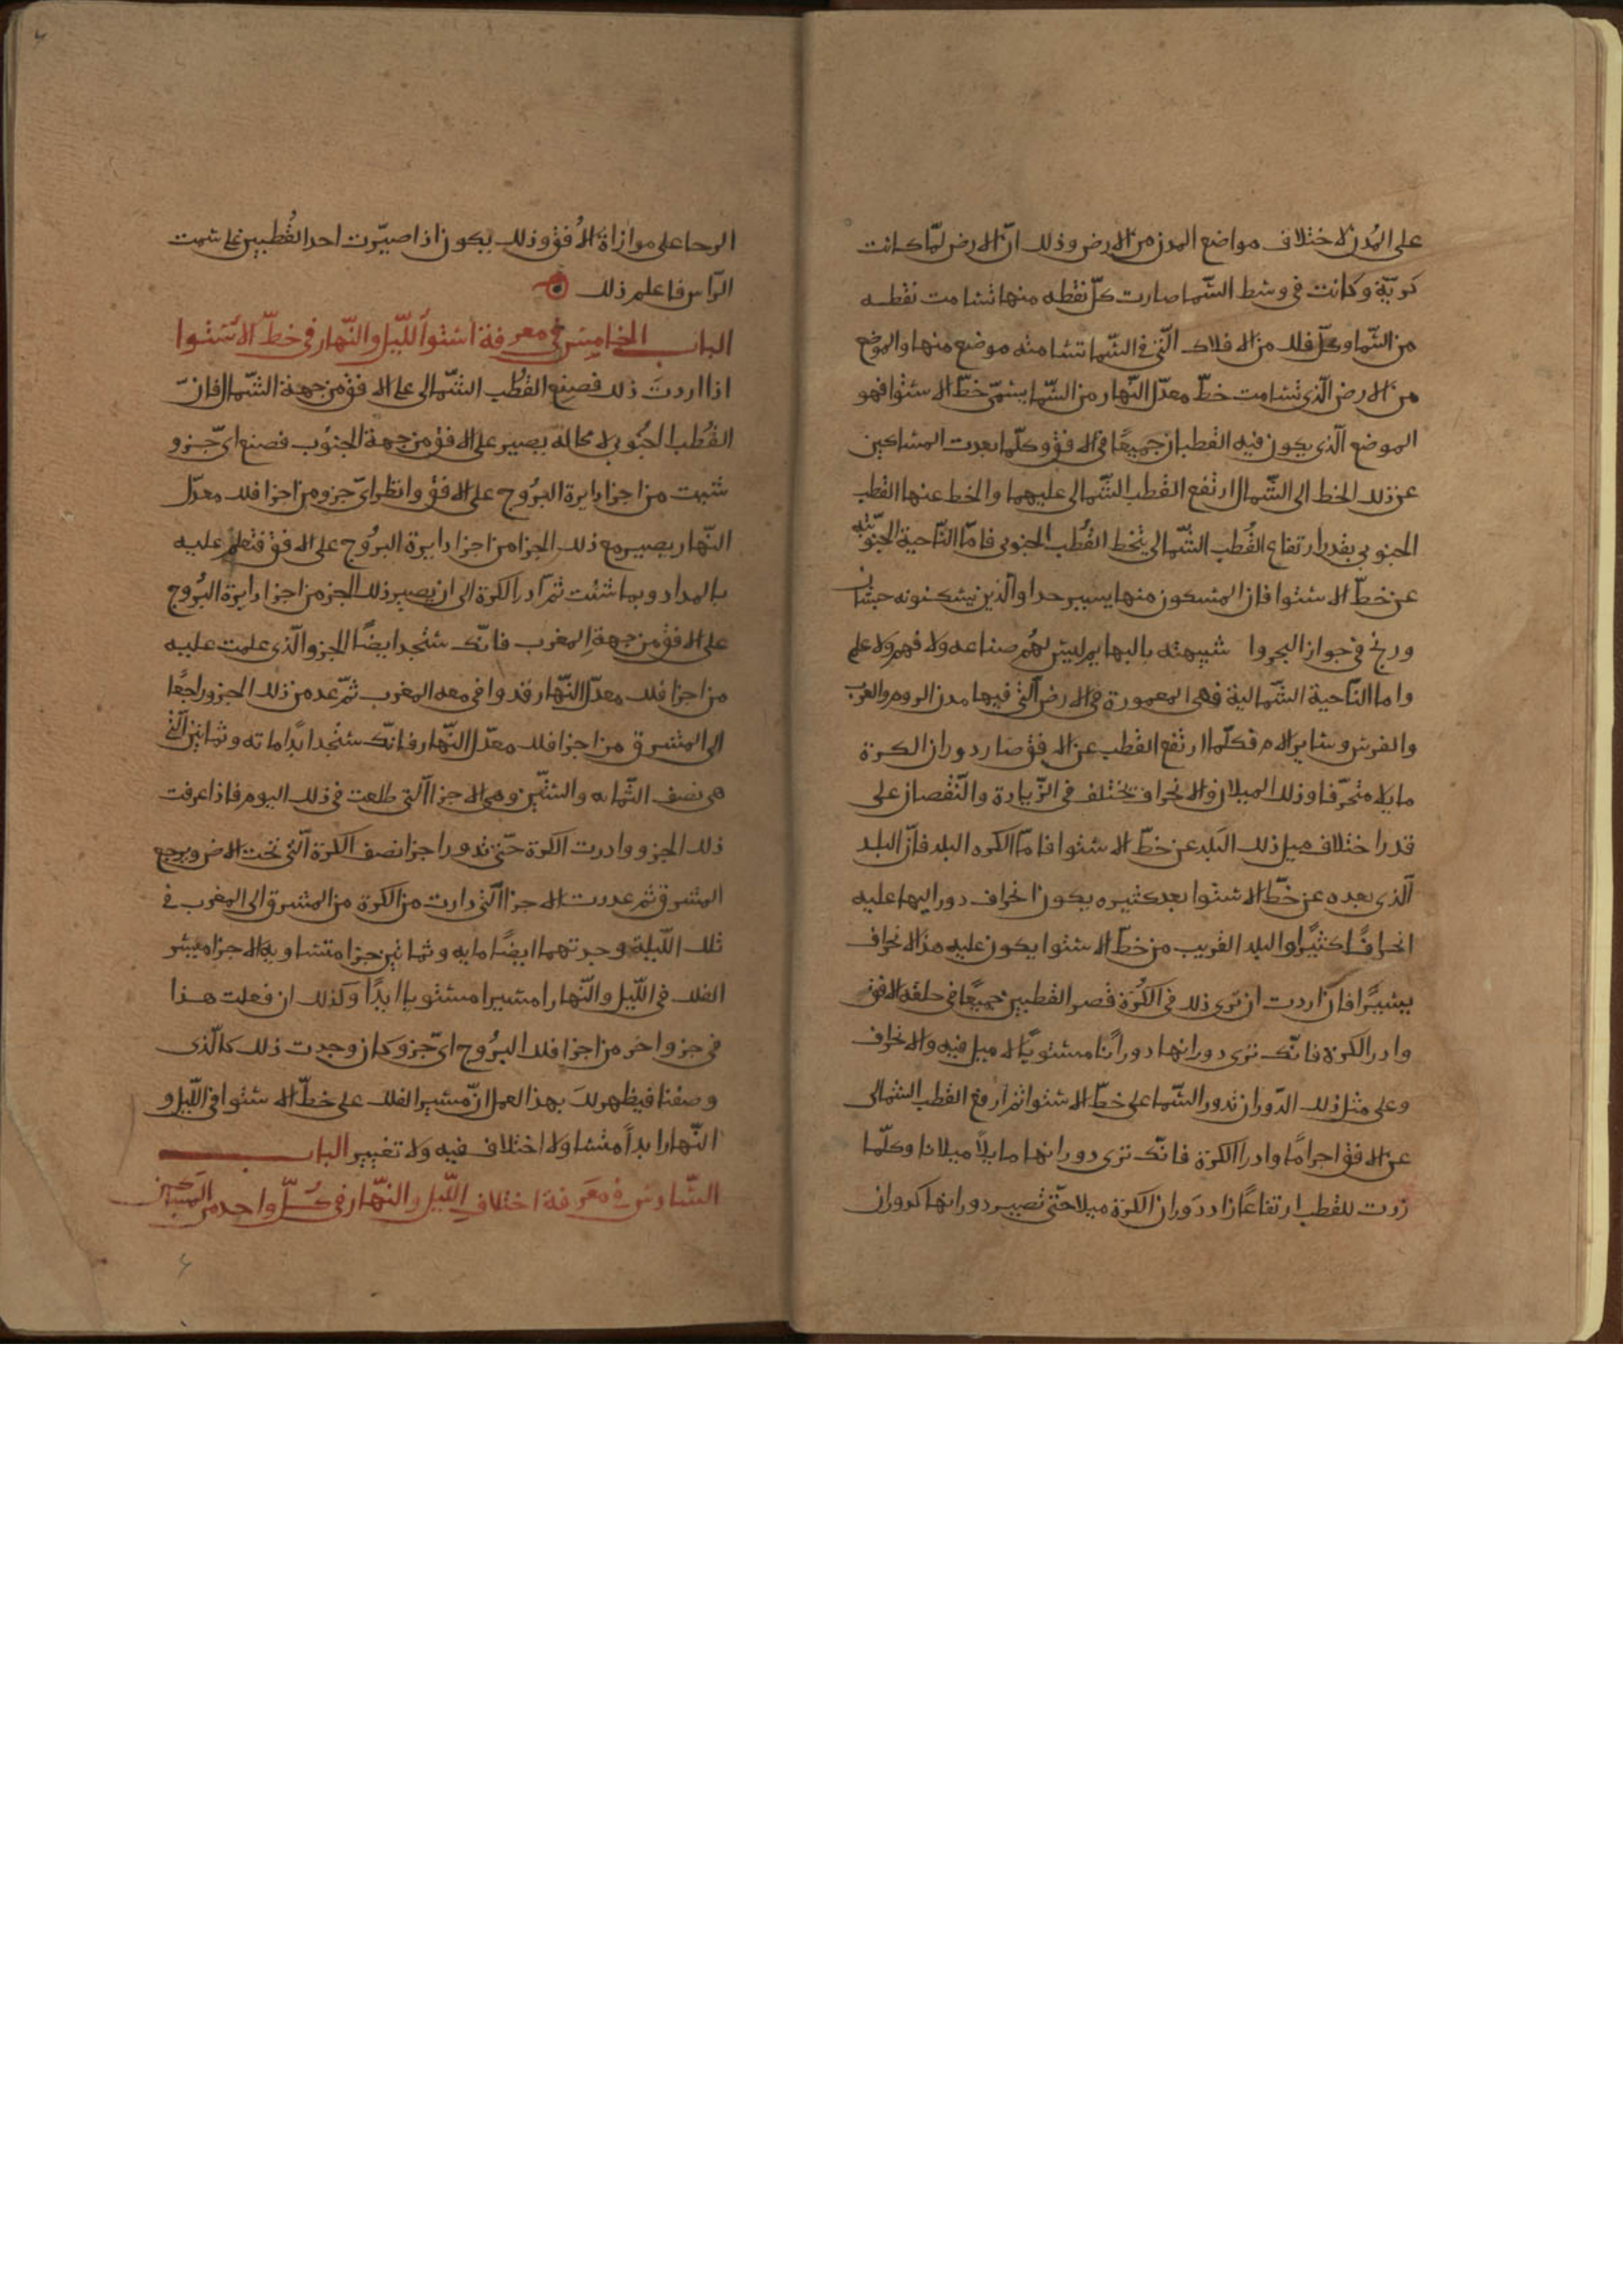 على المُدن لاختلاف مواضع المدن من الارض وذلك انّ الارض لمّا كانت
كريّة وكانت في وسط السّما صارت كلّ نقطه منها تسامت نقطه
من السّما وكلّ فلك من الافلاك الّتي في السّما تسامته موضع منها والموضع
من الارض الّذي تسامت خطّ معدّل النّهار من السّما يسمّى خطّ الاستوا فهو
الموضع الّذي يكون فيه القطبان جميعًا في الافق وكلّما بعدت المساكين
عن ذلك الخط الى الشّمال ارتفع القطب الشّمالى عليهما والخط عنها القطب
الجنوبى بقدر ارتفاع القُطب الشّمالى ينخط القُطب الجنوبى فامّا النّاحية الجنوبيّه
عن خطّ الاستوا فان المسكون منها يسير جدا والّذين يسكنونه حبشان
وزنج في جواز البحروا شبيهته بالبهايم ليس لهُم صناعه ولا فهم ولا علم
واما النّاحية الشّمالية فهى المعمورة في الارض الّتي فيها مدن الروم والعرب
والفرس وساير الامم فكلّما ارتفع القطب عن الافق صار دوران الكرة
مايلا متحرّفا وذلك الميلان والانحراف يختلف في الزّيادة والنّقصان على
قدر اختلاف ميل ذلك البلد عن خطّ الاستوا فامّا الكره البلد فانّ البلد
الّذى بعده عن خطّ الاستوا بعد كثيره يكون انحراف دوراليها عليه
انحرافًا كثيرًا والبلد القريب من خطّ الاستوا يكون عليه هذا الانحراف
يسيرًا فان اردت ان ترى ذلك في الكُرة فصر القطبين جميعًا في حلقه الافق
وادر الكرة فانّك ترى دورانها دورانًا مستويًا لا ميل فيه ولا انحراف
وعلى مثل ذلك الدّوران تدور السّما على خطّ الاستوا ثم ارفع القطب الشمالى
عن الافق اجرامًا وادر الكرة فانّك ترى دورانها مايلاً ميلانا وكلّما
زدت للقطب ارتفاعًا زاد دَوران الكرة ميلا حتّى تصير دورانها كدوران
الرحا على موازاة الأفق وذلك يكون اذا صيّرت احد القُطبين على سمت
الرّاس فاعلم ذلك
الباب الخامس في معرفة استوأ اللّيل والنّهار في خطّ الاستوا
اذا اردتَ ذلك فصنع القُطب الشّمالى على الافق من جهة الشّمال فانّ
القُطب الجنُوبى لا محالة يصير على الافق من جهة الجنوُب فصنع اىّ جزو
شيت من اجزا دايرة البرُوج على الافق وانظر اىّ جزو من اجزا فلك معدّل
النّهار يصير مع ذلك الجزا من اجزا دايرة البرُوج على الافق فتعلم عليه
بالمداد وبما شئت ثم ادر الكرة الى ان يصير ذلك الجز من اجزا دايرة البرُوج
على الافق من جهة المغرب فانّك ستجد ايضًا الجزو الّذى علمت عليه
من اجزا فلك معدّل النّهار قد وافى معه المغرب ثمّ عد من ذلك الجزو راجعًا
الى المشرق من اجزا فلك معدّل النّهار فانّك ستجد ابدًا ماته وثمانين الّتي
هى نصف الثّمايه والستّين وهى الاجزا الّتي طلعت في ذلك اليوم فاذا عرفت
ذلك الجزو وادرت الكرة حتّى تدور اجزا نصف الكرة الّتي تحت الارض ويرجع
المشرق ثم عددت الاجزا الّتي دارت من الكرة من المشرق الى المغرب في
تلك اللّيلة وجدتهما ايضًا مايه وثمانين جزا متساويه الاجزا ميسر
الفلك في اللّيل والنّهار امسيرا مستويا ابدًا وكذلك ان فعلت هذا
في جزو اخر من اجزا فلك البرُوج اىّ جزو كان وجدت ذلك كالّذى
وصفنا فيظهر لكَ بهذا العمل انّ مسير الفلك على خطّ الاستوا في اللّيل و
النّهار ابداً متساو لا اختلاف فيه ولا تغيير الباب
السّادس في معَرفة اختلاف اللّيل والنهّار في كُلّ واحد من المساكين